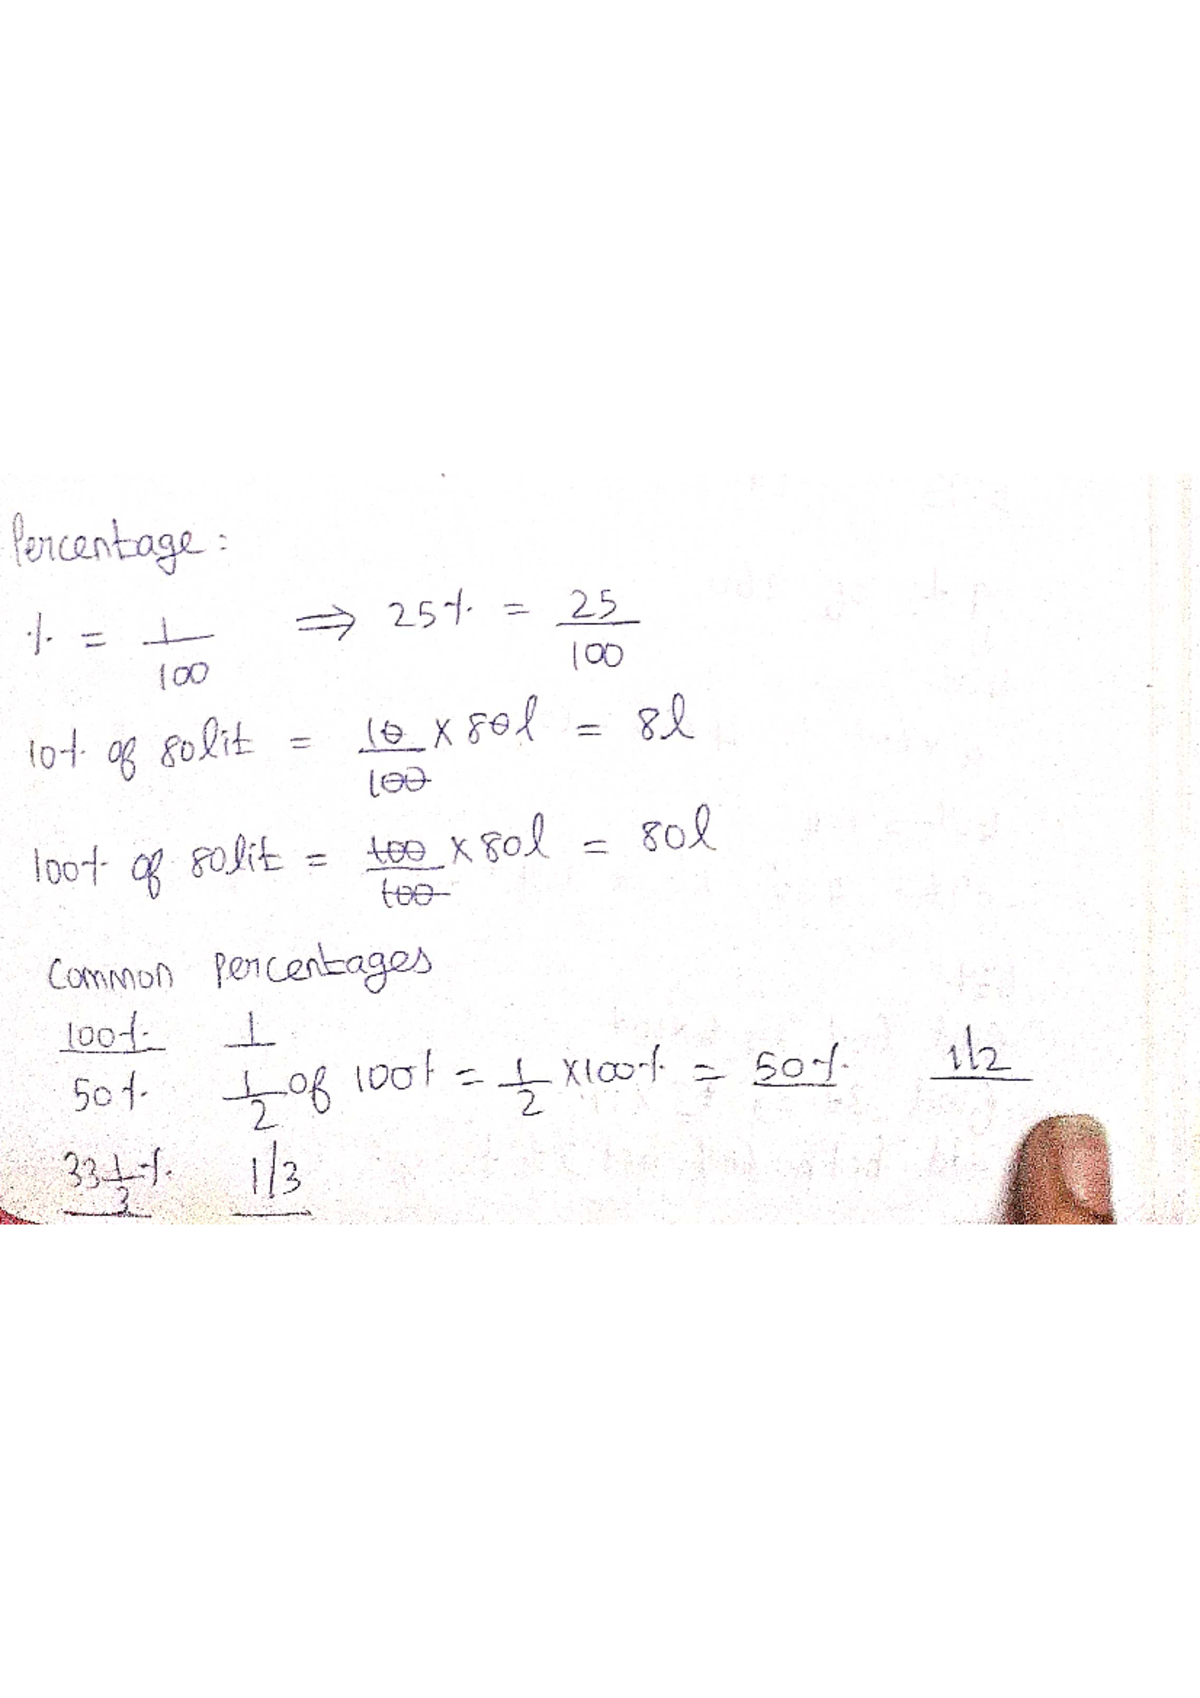 Percentage:
% = 1/100 ⇒ 25% = 25/100
10% of 80lit = 10/100 × 80l = 8l
100% of 80lit = 100/100 × 80l = 80l
Common Percentages
100% 1
50% 1/2 of 100% = 1/2 × 100% = 50% 1/2
33 1/3% 1/3